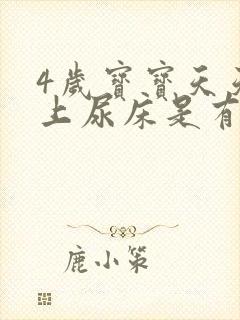 4歲寶寶天天
上尿床是有
鹿小策